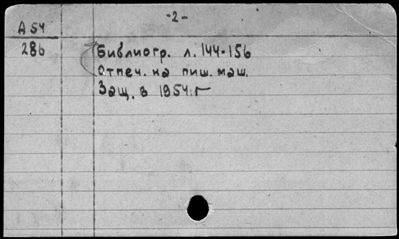 -2-
А 54
286
Библиогр. л. 144-156
Отпеч. на пиш. маш.
Защ. в 1954 г